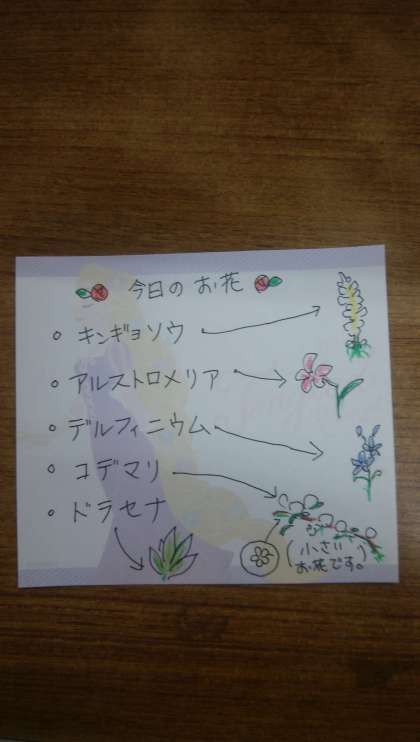 今日のお花
○ キンギョソウ
○ アルストロメリア
○ デルフィニウム
○ コデマリ
○ ドラセナ
(小さい
お花です。)